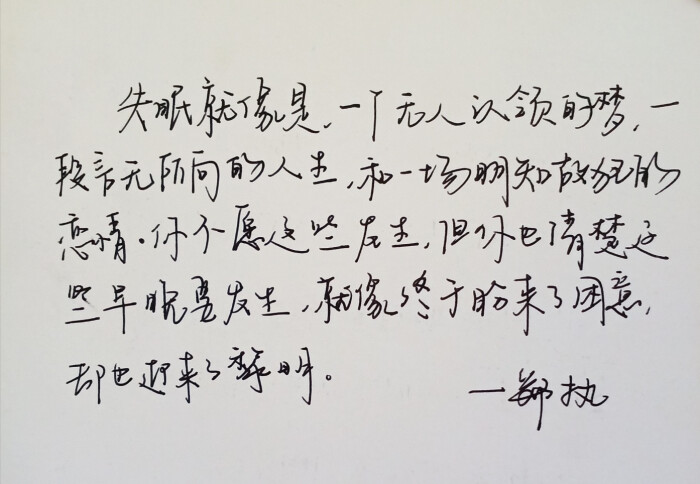 失眠就像是，一个无人认领的梦，一
段言无所向的人生，和一场明知故犯的
恋情．你不愿这些发生，但你也清楚这
些早晚要发生，就像终于盼来了困意，
却也迎来了黎明。
一郑执